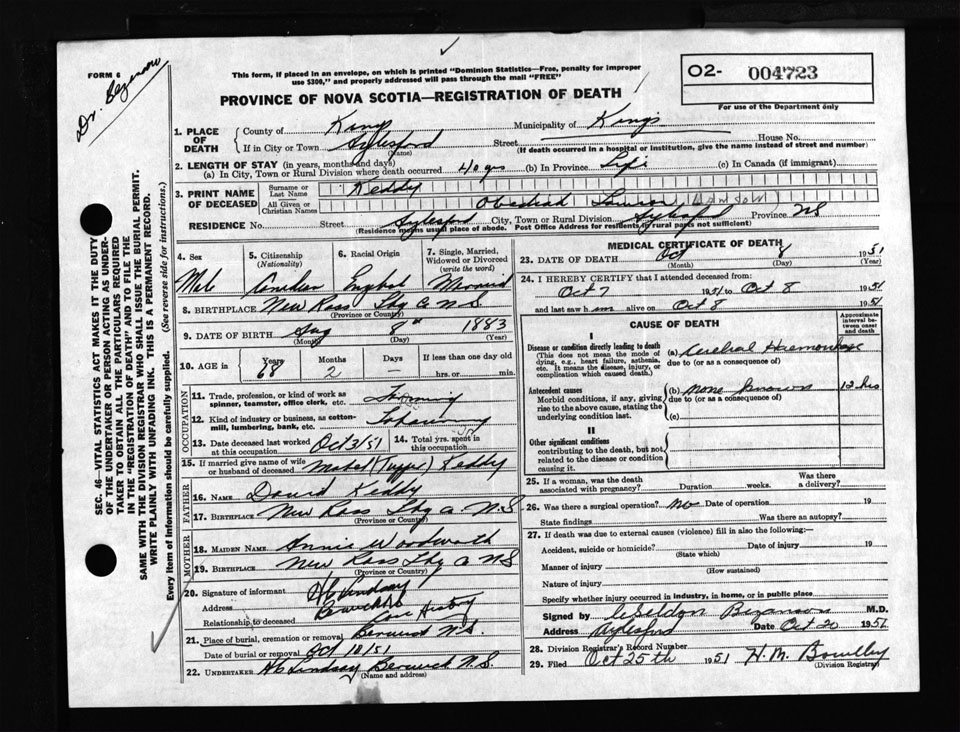 FORM 6
Dr. Bezanson
This form, if placed in an envelope, on which is printed "Dominion Statistics—Free, penalty for improper
use $300," and properly addressed will pass through the mail "FREE"
PROVINCE OF NOVA SCOTIA—REGISTRATION OF DEATH
O2- 004723
For use of the Department only
SEC. 46—VITAL STATISTICS ACT MAKES IT THE DUTY
OF THE UNDERTAKER OR PERSON ACTING AS UNDER-
TAKER TO OBTAIN ALL THE PARTICULARS REQUIRED
IN THE "REGISTRATION OF DEATH" AND TO FILE THE
SAME WITH THE DIVISION REGISTRAR WHO SHALL ISSUE THE BURIAL PERMIT.
WRITE PLAINLY WITH UNFADING INK. THIS IS A PERMANENT RECORD.
Every item of Information should be carefully supplied. (See reverse side for instructions.)
1. PLACE OF DEATH County of Kings Municipality of Kings
If in City or Town Aylesford Street House No.
(Name) (If death occurred in a hospital or institution, give the name instead of street and number)
2. LENGTH OF STAY (in years, months and days)
(a) In City, Town or Rural Division where death occurred 40 yrs (b) In Province Life (c) In Canada (if immigrant)
3. PRINT NAME OF DECEASED Surname or Last Name Keddy
All Given or Christian Names Obediah
RESIDENCE No. Street Aylesford City, Town or Rural Division Aylesford Province NS
(Residence means usual place of abode. Post Office Address for residents in rural parts not sufficient)
4. Sex Male
5. Citizenship (Nationality) Canadian
6. Racial Origin English
7. Single, Married, Widowed or Divorced (write the word) Married
8. BIRTHPLACE New Ross N.S
(Province or Country)
9. DATE OF BIRTH Aug 8th 1883
(Month) (Day) (Year)
10. AGE in Years 68 Months 2 Days — If less than one day hrs. or min.
OCCUPATION
11. Trade, profession, or kind of work as spinner, teamster, office clerk, etc. Farming
12. Kind of industry or business, as cotton-mill, lumbering, bank, etc.
13. Date deceased last worked at this occupation Oct 3/51
14. Total yrs. spent in this occupation
15. If married give name of wife or husband of deceased Mabel (Tupper) Keddy
FATHER
16. NAME David Keddy
17. BIRTHPLACE New Ross N.S
(Province or Country)
MOTHER
18. MAIDEN NAME Annie Woodworth
19. BIRTHPLACE New Ross N S
(Province or Country)
20. Signature of informant H C Lindsay
Address Berwick NS
Relationship to deceased
21. Place of burial, cremation or removal Berwick N.S.
Date of burial or removal Oct 10/51
22. UNDERTAKER H C Lindsay Berwick N.S.
(Name and address)
MEDICAL CERTIFICATE OF DEATH
23. DATE OF DEATH Oct 8 1951
(Month) (Day) (Year)
24. I HEREBY CERTIFY that I attended deceased from:
Oct 7 1951 to Oct 8 1951
and last saw him alive on Oct 8 1951
CAUSE OF DEATH
Approximate interval between onset and death
I
Disease or condition directly leading to death
(This does not mean the mode of dying, e.g., heart failure, asthenia, etc. It means the disease, injury, or complication which caused death.)
(a) Cerebral Haemorrhage
due to (or as a consequence of)
Antecedent causes
Morbid conditions, if any, giving rise to the above cause, stating the underlying condition last.
(b) none known 12 hrs
due to (or as a consequence of)
(c)
II
Other significant conditions
contributing to the death, but not related to the disease or condition causing it.
25. If a woman, was the death associated with pregnancy? Duration weeks. Was there a delivery?
26. Was there a surgical operation? No Date of operation 19
State findings Was there an autopsy?
27. If death was due to external causes (violence) fill in also the following:—
Accident, suicide or homicide? Date of injury 19
(State which)
Manner of injury
(How sustained)
Nature of injury
Specify whether injury occurred in industry, in home, or in public place
Signed by C Seldon Bezanson M.D.
Address Aylesford Date Oct 20 1951
28. Division Registrar's Record Number
29. Filed Oct 25th 1951 H. M.
(Division Registrar)